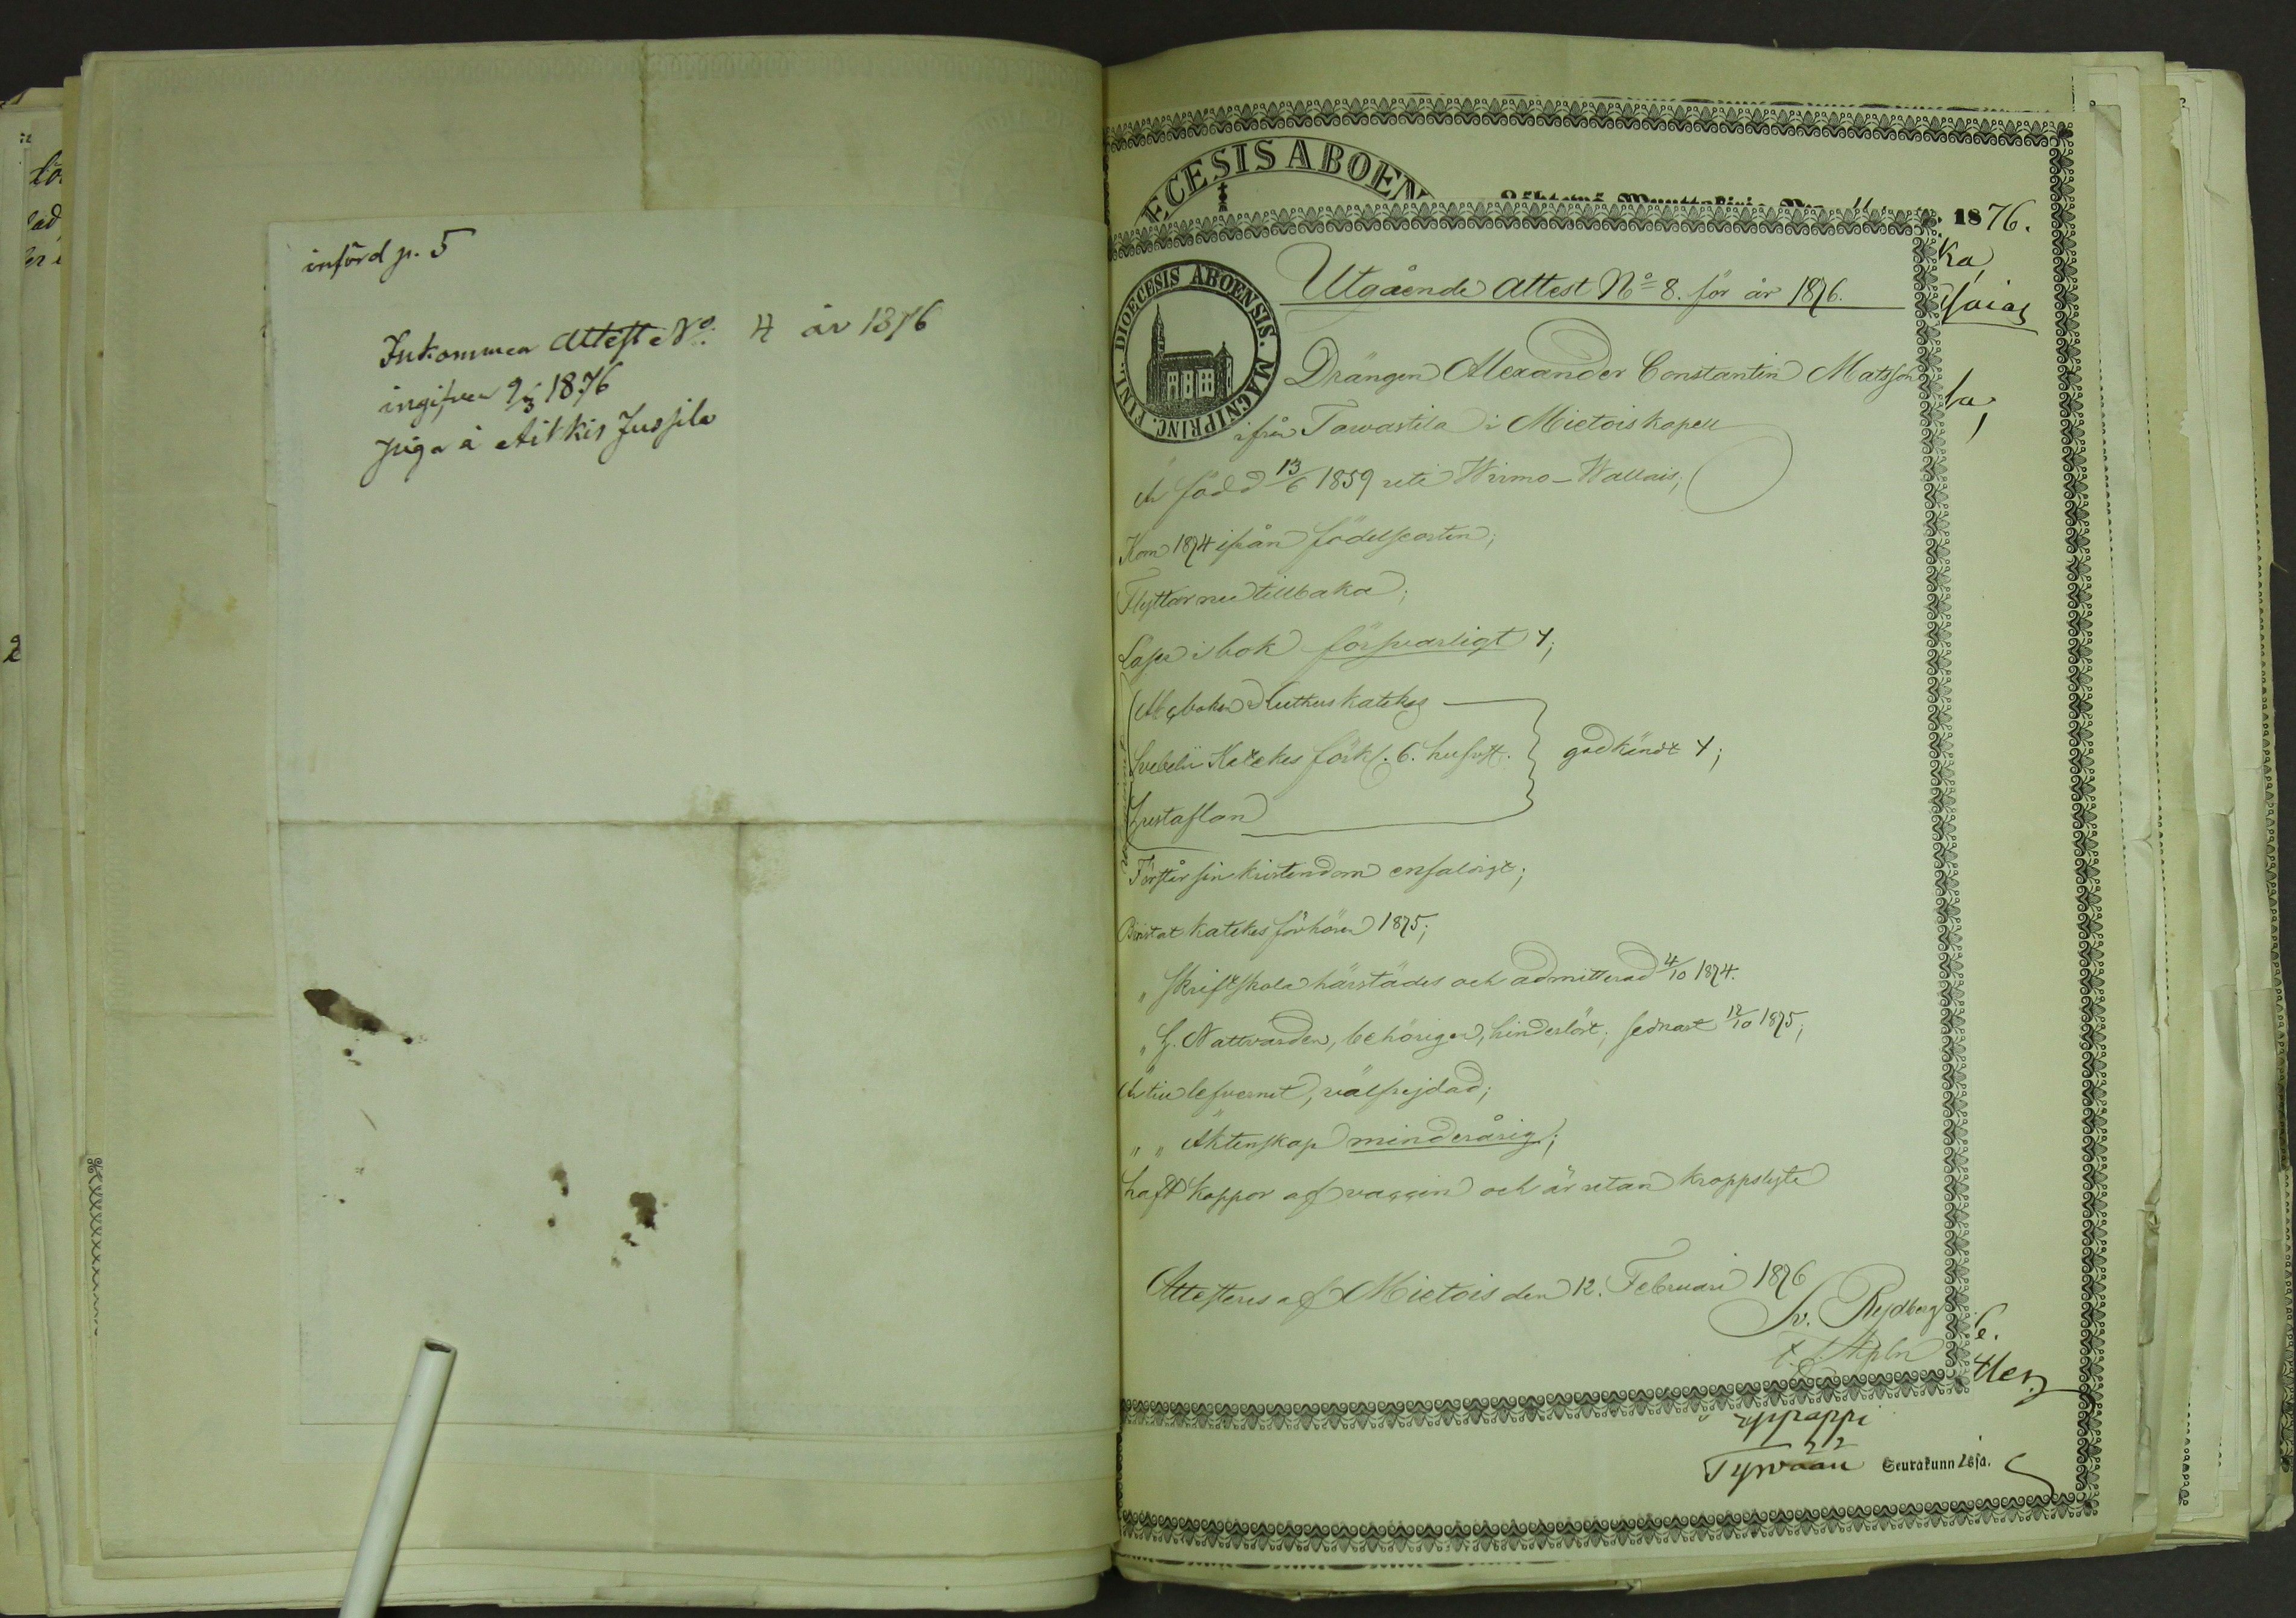 införd p. 5
Inkommen Attest No. 4 år 1876
ingifven 9/3 1876
piga å Aitkis Jussila
ECESIS ABOEN
1876.
ka,
DIOECESIS ABOENSIS. MAGNI PRINC. FINL.
Utgående Attest No 8. för år 1876.
Drängen Alexander Constantin Matsson
ifrån Tawastila i Mietois kapell
Är född 13/6 1859 uti Wirmo-Wallais;
Kom 1874 ifrån födelseorten;
Flyttar nu tillbaka;
Läser i bok försvarligt +;
Abc boken o Luthers katekes
Svebelii Katekes förkl. 6. hufvst. godkändt +;
Hustaflan
Förstår sin kristendom enfaldigt;
Bivistat katekesförhören 1875;
„ skriftskola härstädes och admitterad 4/10 1874.
„ H. Nattvarden, behörigen, hinderlöst; sednast 12/10 1875;
Är till lefvernet, välfrejdad;
„ „ Äktenskap minderårig;
haft koppor af vaggin och är utan kroppslyte
Attesteras af Mietois den 12. Februari 1876
Sv. Rydberg
t. f. Kpln
Tyrvään Seurakunnassa.